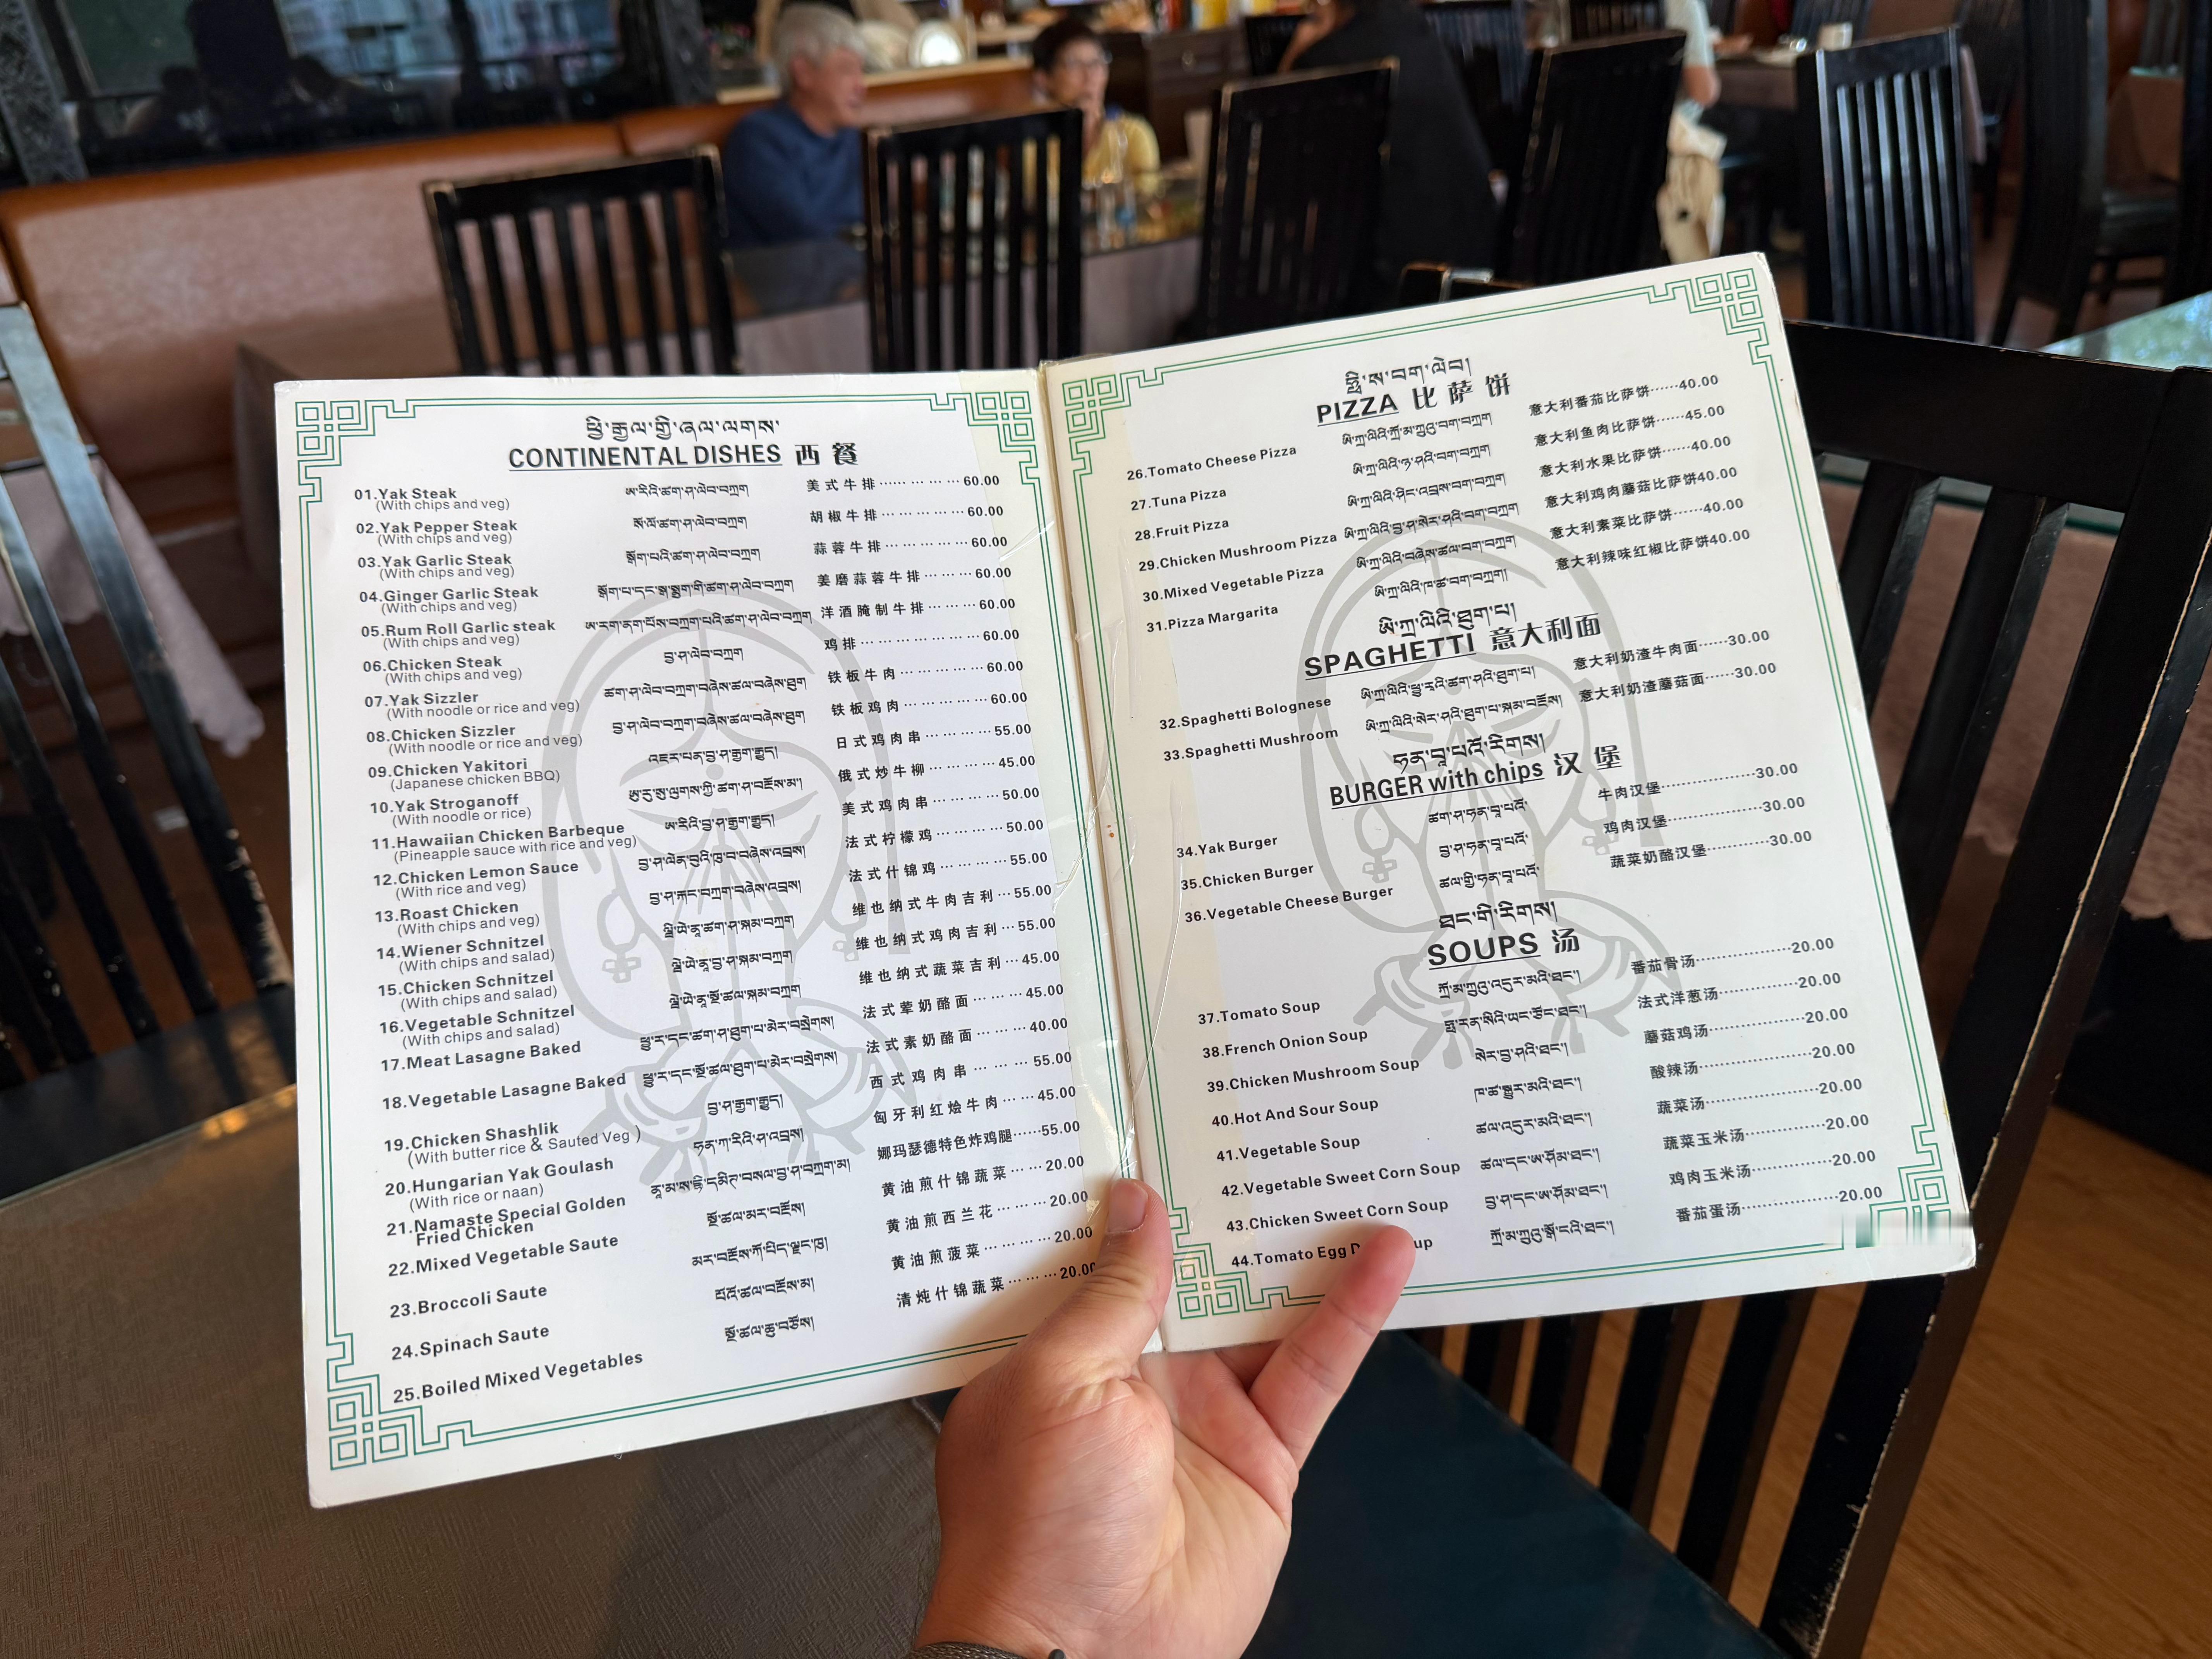 ཕྱི་རྒྱལ་གྱི་ཞལ་ལགས་
CONTINENTAL DISHES 西餐
01.Yak Steak ཨ་རིའི་ཚག་ཤ་ལེབ་བཀྲག 美式牛排………………60.00
(With chips and veg)
02.Yak Pepper Steak སོ་ལོ་ཚག་ཤ་ལེབ་བཀྲག 胡椒牛排………………60.00
(With chips and veg)
03.Yak Garlic Steak སྒོག་པའི་ཚག་ཤ་ལེབ་བཀྲག 蒜蓉牛排………………60.00
(With chips and veg)
04.Ginger Garlic Steak 姜磨蒜蓉牛排…………60.00
(With chips and veg)
05.Rum Roll Garlic steak 洋酒腌制牛排…………60.00
(With chips and veg)
06.Chicken Steak བྱ་ཤ་ལེབ་བཀྲག 鸡排……………………60.00
(With chips and veg)
07.Yak Sizzler ཚག་ཤ་ལེབ་བཀྲག་བཞེས་ཚལ་བཞེས་ཐུག 铁板牛肉………………60.00
(With noodle or rice and veg)
08.Chicken Sizzler བྱ་ཤ་ལེབ་བཀྲག་བཞེས་ཚལ་བཞེས་ཐུག 铁板鸡肉………………60.00
(With noodle or rice and veg)
09.Chicken Yakitori འཇར་པན་བྱ་ཤ་རྒྱག་རྒྱུད། 日式鸡肉串……………55.00
(Japanese chicken BBQ)
10.Yak Stroganoff 俄式炒牛柳……………45.00
(With noodle or rice)
11.Hawaiian Chicken Barbeque ཨ་རིའི་བྱ་ཤ་རྒྱག་རྒྱུད། 美式鸡肉串……………50.00
(Pineapple sauce with rice and veg)
12.Chicken Lemon Sauce 法式柠檬鸡……………50.00
(With rice and veg)
13.Roast Chicken བྱ་ཤ་རྐང་བཀྲག་བཞེས་འབྲས། 法式什锦鸡……………55.00
(With chips and veg)
14.Wiener Schnitzel 维也纳式牛肉吉利…55.00
(With chips and salad)
15.Chicken Schnitzel 维也纳式鸡肉吉利…55.00
(With chips and salad)
16.Vegetable Schnitzel 维也纳式蔬菜吉利…45.00
(With chips and salad)
17.Meat Lasagne Baked 法式荤奶酪面…………45.00
18.Vegetable Lasagne Baked 法式素奶酪面…………40.00
19.Chicken Shashlik བྱ་ཤ་རྒྱག་རྒྱུད། 西式鸡肉串……………55.00
(With butter rice & Sauted Veg )
20.Hungarian Yak Goulash ཧན་ཀ་རིའི་ཤ་འབྲས། 匈牙利红烩牛肉………45.00
(With rice or naan)
21.Namaste Special Golden 娜玛瑟德特色炸鸡腿……55.00
Fried Chicken
22.Mixed Vegetable Saute སྔོ་ཚལ་མར་བརྔོས། 黄油煎什锦蔬菜………20.00
23.Broccoli Saute 黄油煎西兰花…………20.00
24.Spinach Saute པའོ་ཚལ་བརྔོས་མ། 黄油煎菠菜……………20.00
25.Boiled Mixed Vegetables སྔོ་ཚལ་ཆུ་བཙོས། 清炖什锦蔬菜…………20.00
PIZZA 比萨饼
26.Tomato Cheese Pizza 意大利番茄比萨饼……40.00
27.Tuna Pizza ཨི་ཀྲ་ལིའི་ཉ་ཤའི་བག་བཀྲག 意大利鱼肉比萨饼……45.00
28.Fruit Pizza ཨི་ཀྲ་ལིའི་ཤིང་འབྲས་བག་བཀྲག 意大利水果比萨饼……40.00
29.Chicken Mushroom Pizza ཨི་ཀྲ་ལིའི་བྱ་ཤ་སེར་ཤའི་བག་བཀྲག 意大利鸡肉蘑菇比萨饼40.00
30.Mixed Vegetable Pizza ཨི་ཀྲ་ལིའི་བཞེས་ཚལ་བག་བཀྲག 意大利素菜比萨饼……40.00
31.Pizza Margarita ཨི་ཀྲ་ལིའི་ཁ་ཚ་བག་བཀྲག། 意大利辣味红椒比萨饼40.00
ཨི་ཀྲ་ལིའི་ཐུག་པ།
SPAGHETTI 意大利面
32.Spaghetti Bolognese ཨི་ཀྲ་ལིའི་ཕྱུ་རའི་ཚག་ཤའི་ཐུག་པ། 意大利奶渣牛肉面……30.00
33.Spaghetti Mushroom ཨི་ཀྲ་ལིའི་སེར་ཤའི་ཐུག་པ་སྐམ་བརྔོས། 意大利奶渣蘑菇面……30.00
ཧན་བཱ་པའོ་རིགས།
BURGER with chips 汉堡
34.Yak Burger ཚག་ཤ་ཧན་བཱ་པའོ་ 牛肉汉堡………………30.00
35.Chicken Burger བྱ་ཤ་ཧན་བཱ་པའོ་ 鸡肉汉堡………………30.00
36.Vegetable Cheese Burger ཚལ་གྱི་ཧན་བཱ་པའོ་ 蔬菜奶酪汉堡…………30.00
ཐང་གི་རིགས།
SOUPS 汤
37.Tomato Soup 番茄骨汤………………20.00
38.French Onion Soup 法式洋葱汤……………20.00
39.Chicken Mushroom Soup སེར་བྱ་ཤའི་ཐང་། 蘑菇鸡汤………………20.00
40.Hot And Sour Soup ཁ་ཚ་སྐྱུར་མའི་ཐང་། 酸辣汤…………………20.00
41.Vegetable Soup ཚལ་འདུར་མའི་ཐང་། 蔬菜汤…………………20.00
42.Vegetable Sweet Corn Soup ཚལ་དང་ཨ་ཤོམ་ཐང་། 蔬菜玉米汤……………20.00
43.Chicken Sweet Corn Soup བྱ་ཤ་དང་ཨ་ཤོམ་ཐང་། 鸡肉玉米汤……………20.00
44.Tomato Egg 番茄蛋汤………………20.00